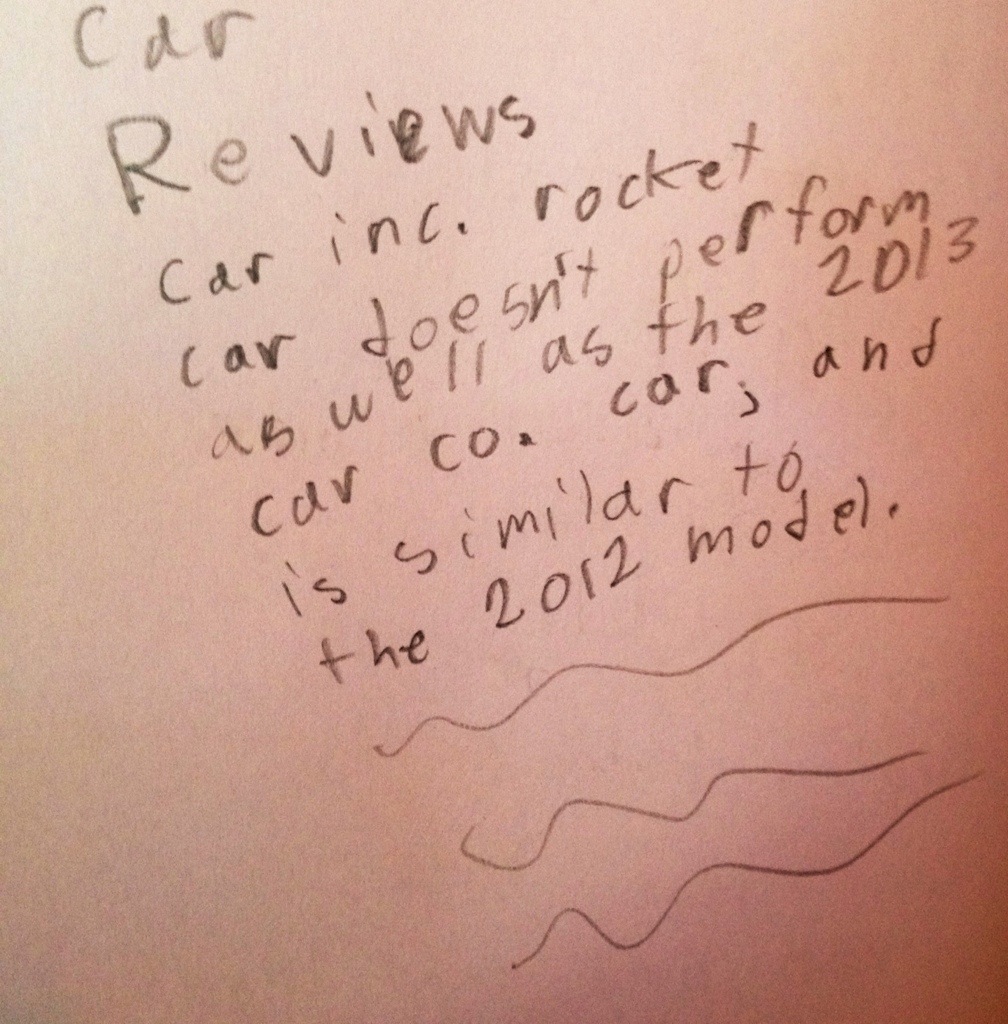 Car
Reviews
Car inc. rocket
car doesn't perform
as well as the 2013
car co. car, and
is similar to
the 2012 model.